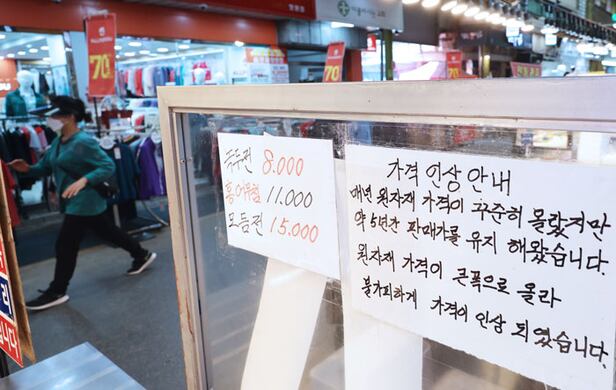 70%
70%
70
8.000
11.000
모듬전 15.000
가격 인상 안내
매년 원자재 가격이 꾸준히 올랐지만
약 5년간 판매가를 유지 해왔습니다
원자재 가격이 큰폭으로 올라
불가피하게 가격이 인상 되었습니다.